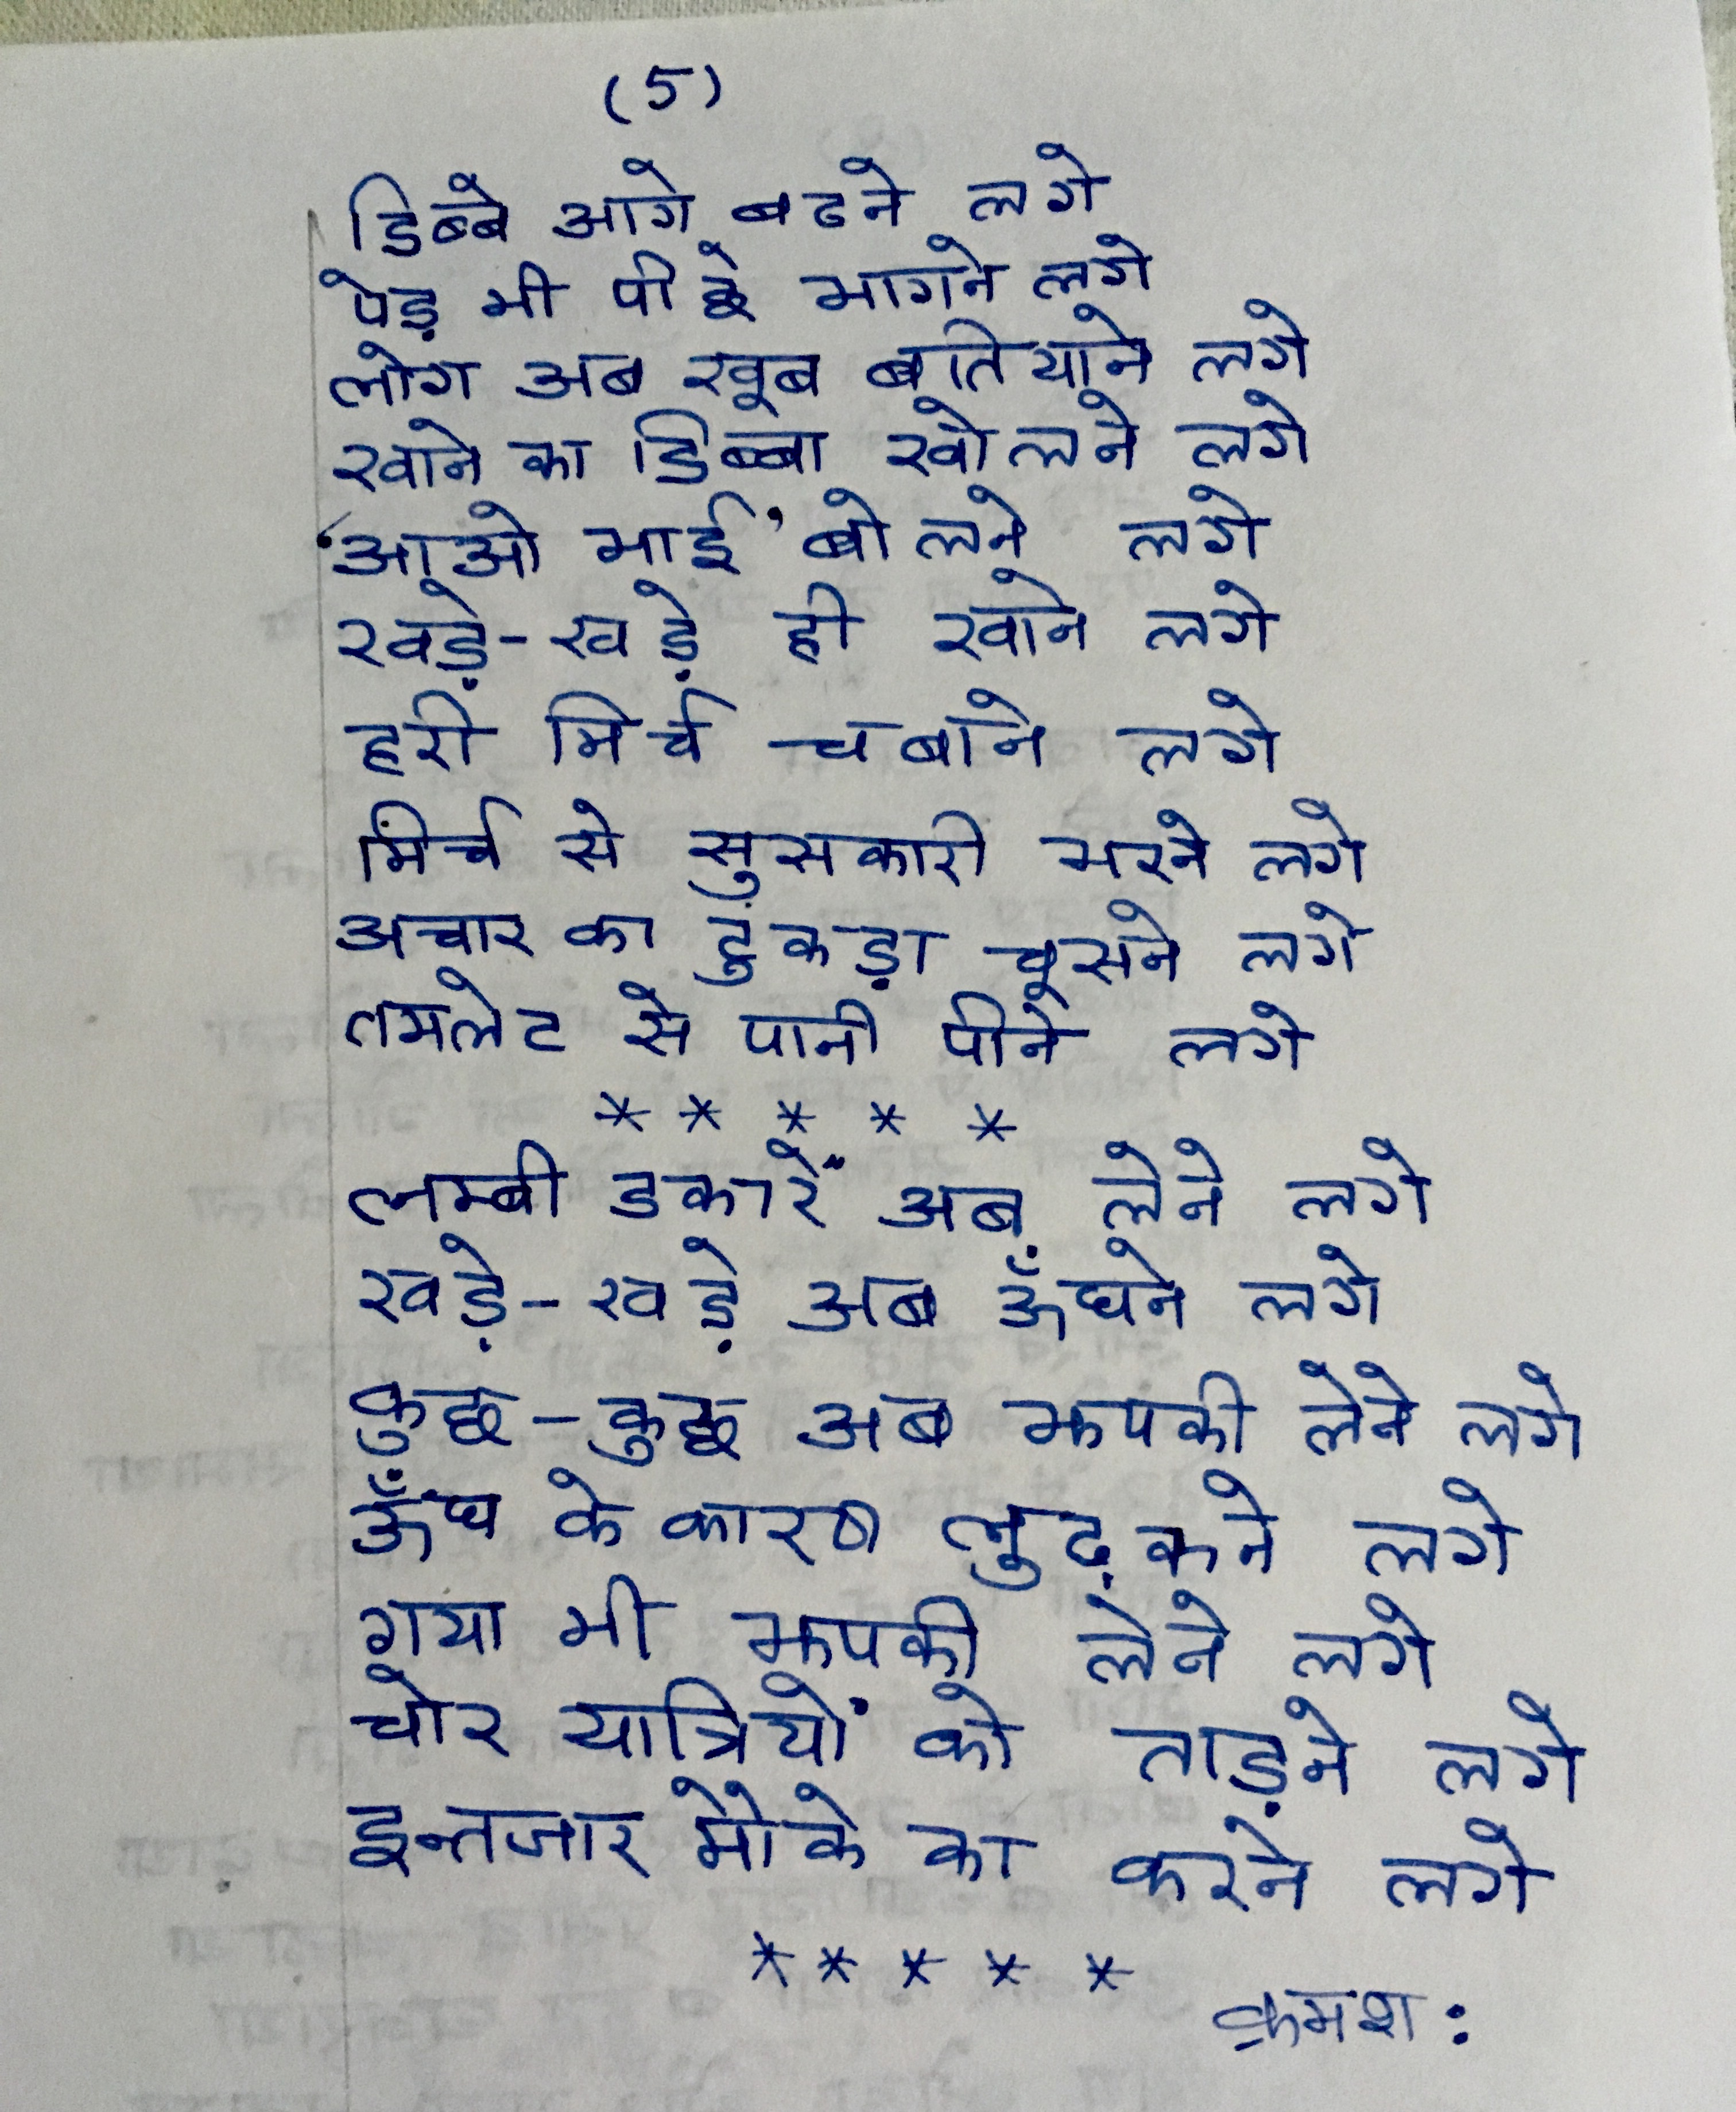 (5)
डिब्बे आगे बढने लगे
पेड़ भी पीछे भागने लगे
लोग अब खूब बतियाने लगे
खाने का डिब्बा खोलने लगे
‘आओ भाई’ बोलने लगे
खड़े-खड़े ही खाने लगे
हरी मिर्च चबाने लगे
मिर्च से सुसकारी भरने लगे
अचार का टुकड़ा चूसने लगे
तमलेट से पानी पीने लगे
* * * * *
लम्बी डकारें अब लेने लगे
खड़े-खड़े अब ऊँघने लगे
कुछ-कुछ अब झपकी लेने लगे
ऊँघ के कारण लुढ़कने लगे
गया भी झपकी लेने लगे
चोर यात्रियों को ताड़ने लगे
इन्तजार मौके का करने लगे
* * * * *
क्रमश: